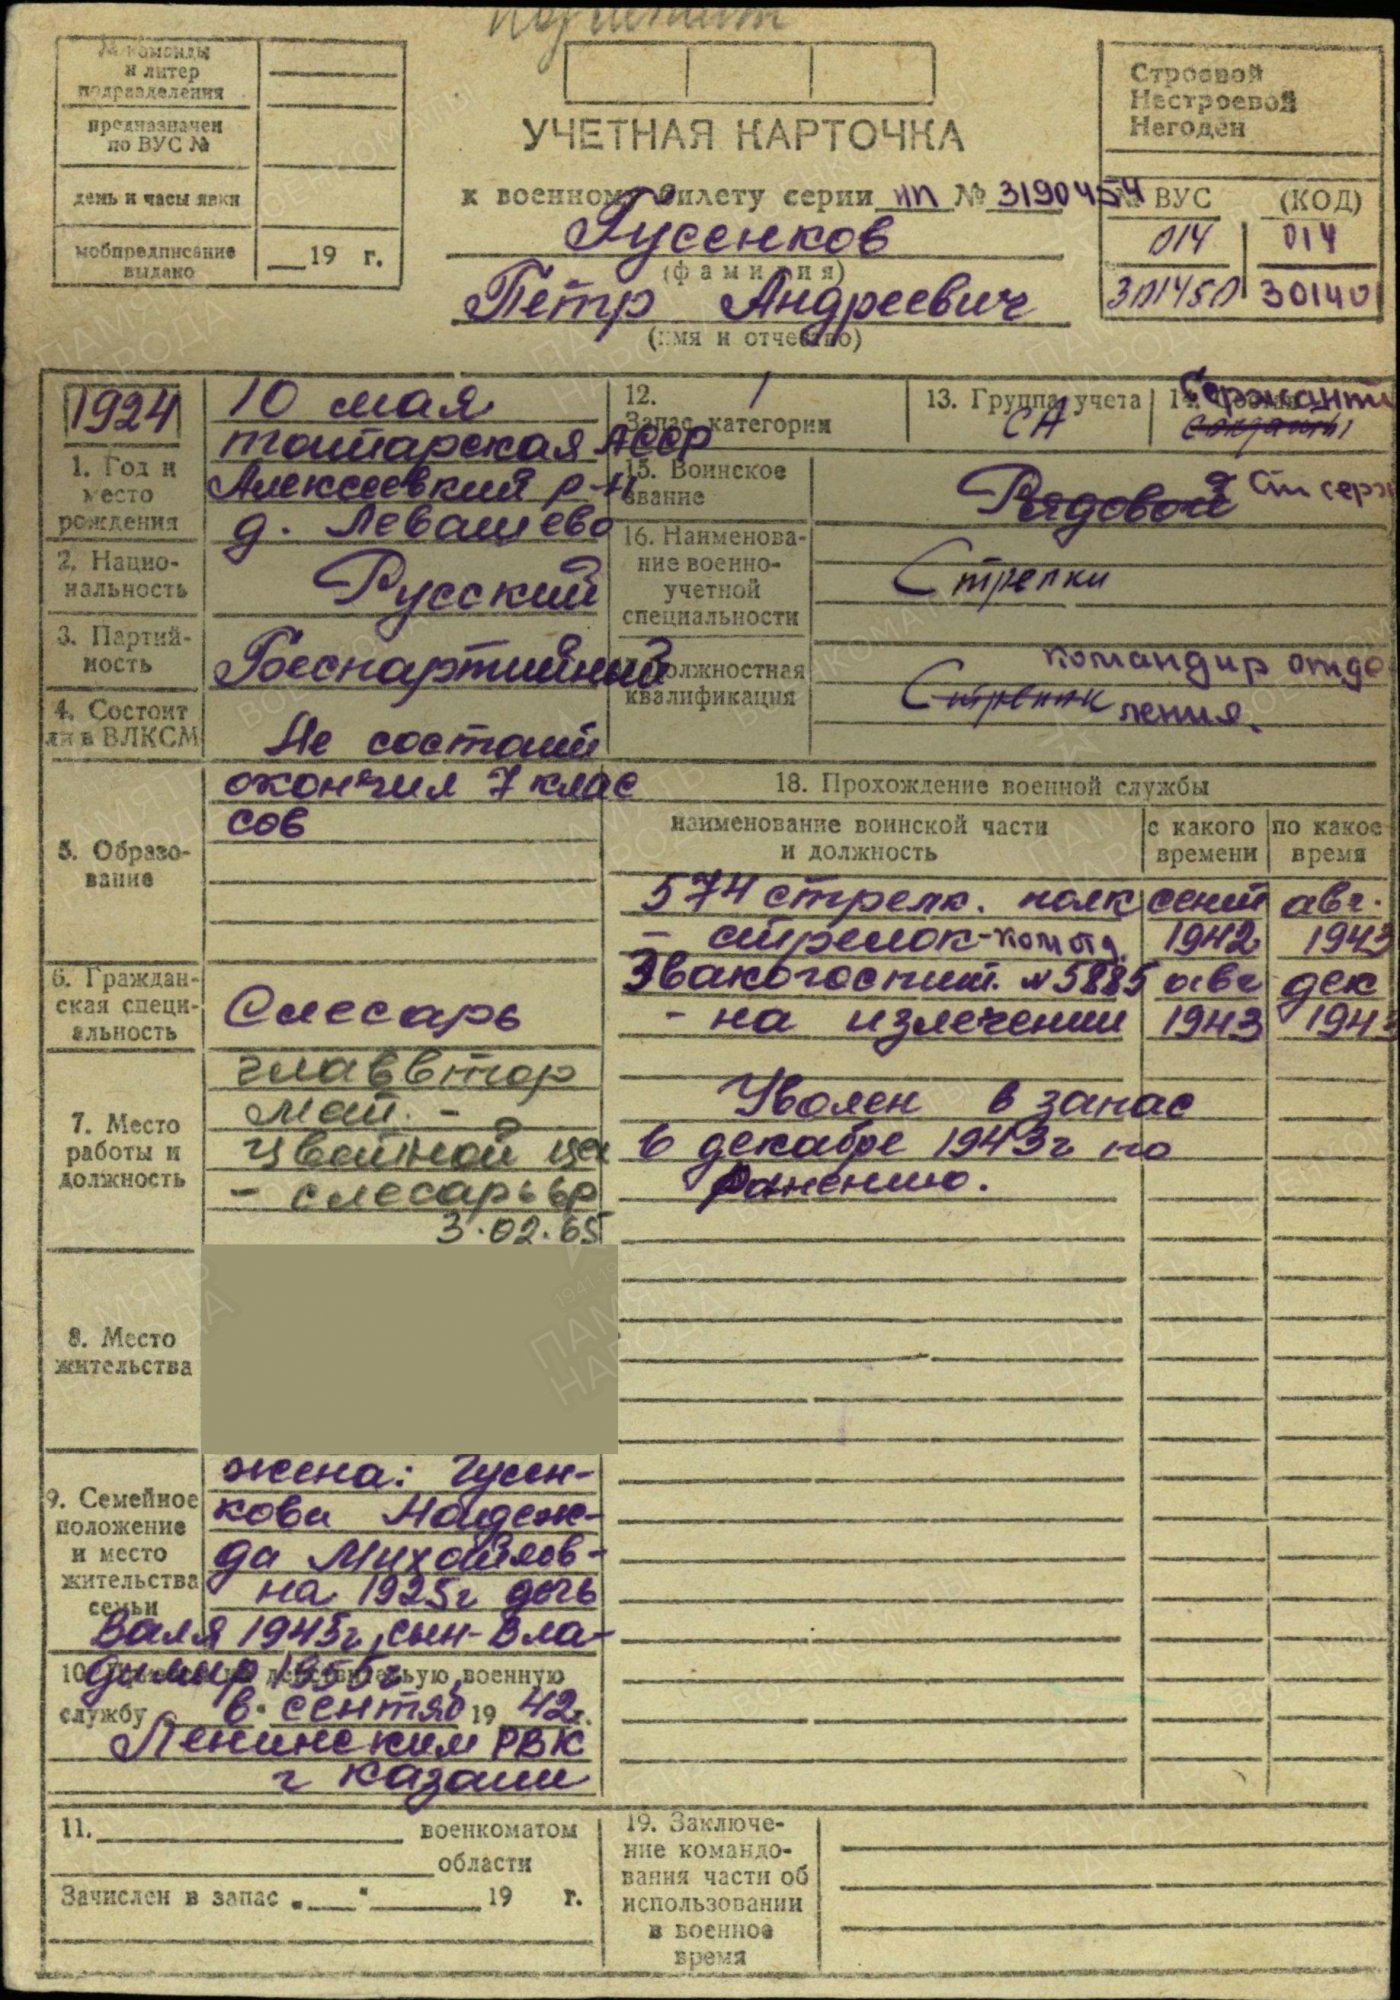 № команды
и литер
подразделения
предназначен
по ВУС №
день и часы явки
мобпредписание
выдано
19 г.
УЧЕТНАЯ КАРТОЧКА
к военному билету серии НП № 3190454
Гусенков
(фамилия)
Петр Андреевич
(имя и отчество)
Строевой
Нестроевой
Негоден
№ ВУС (КОД)
014 014
301450 30140
1924
1. Год и
место
рождения
10 мая
татарская АССР
Алексеевкий р-н
д. Левашево
2. Нацио-
нальность
Русский
3. Партий-
ность
Беспартийный
4. Состоит
ли в ВЛКСМ
Не состоит
5. Образо-
вание
окончил 7 клас
сов
6. Граждан-
ская специ-
альность
Слесарь
7. Место
работы и
должность
главвтор
мет. -
цветной цех
- слесарь 6р
3.02.65
8. Место
жительства
9. Семейное
положение
и место
жительства
семьи
жена: Гусен-
кова Надеж-
да Михайлов-
на 1925г дочь
Валя 1945г, сын-Вла-
димир 1955г
10. действительную военную
службу в сентяб 1942г.
Ленинским РВК
г Казани
11. военкоматом
области
Зачислен в запас „ “ 19 г.
12.
Запас категории
1
13. Группа учета
СА
14.
Сержанты
солдаты
15. Воинское
звание
Рядовой Ст серж
16. Наименова-
ние военно-
учетной
специальности
Стрелки
должностная
квалификация
Стрелок
командир отде
ления.
18. Прохождение военной службы
наименование воинской части
и должность
с какого
времени
по какое
время
574 стрелк. полк сент авг.
- стрелок-ком отд. 1942 1943
Эвакогоспит. №5885 авг дек
- на излечении 1943 1943
Уволен в запас
в декабре 1943г по
ранению.
19. Заключе-
ние командо-
вания части об
использовании
в военное
время
ПАМЯТЬ
НАРОДА
ВОЕНКОМАТЫ